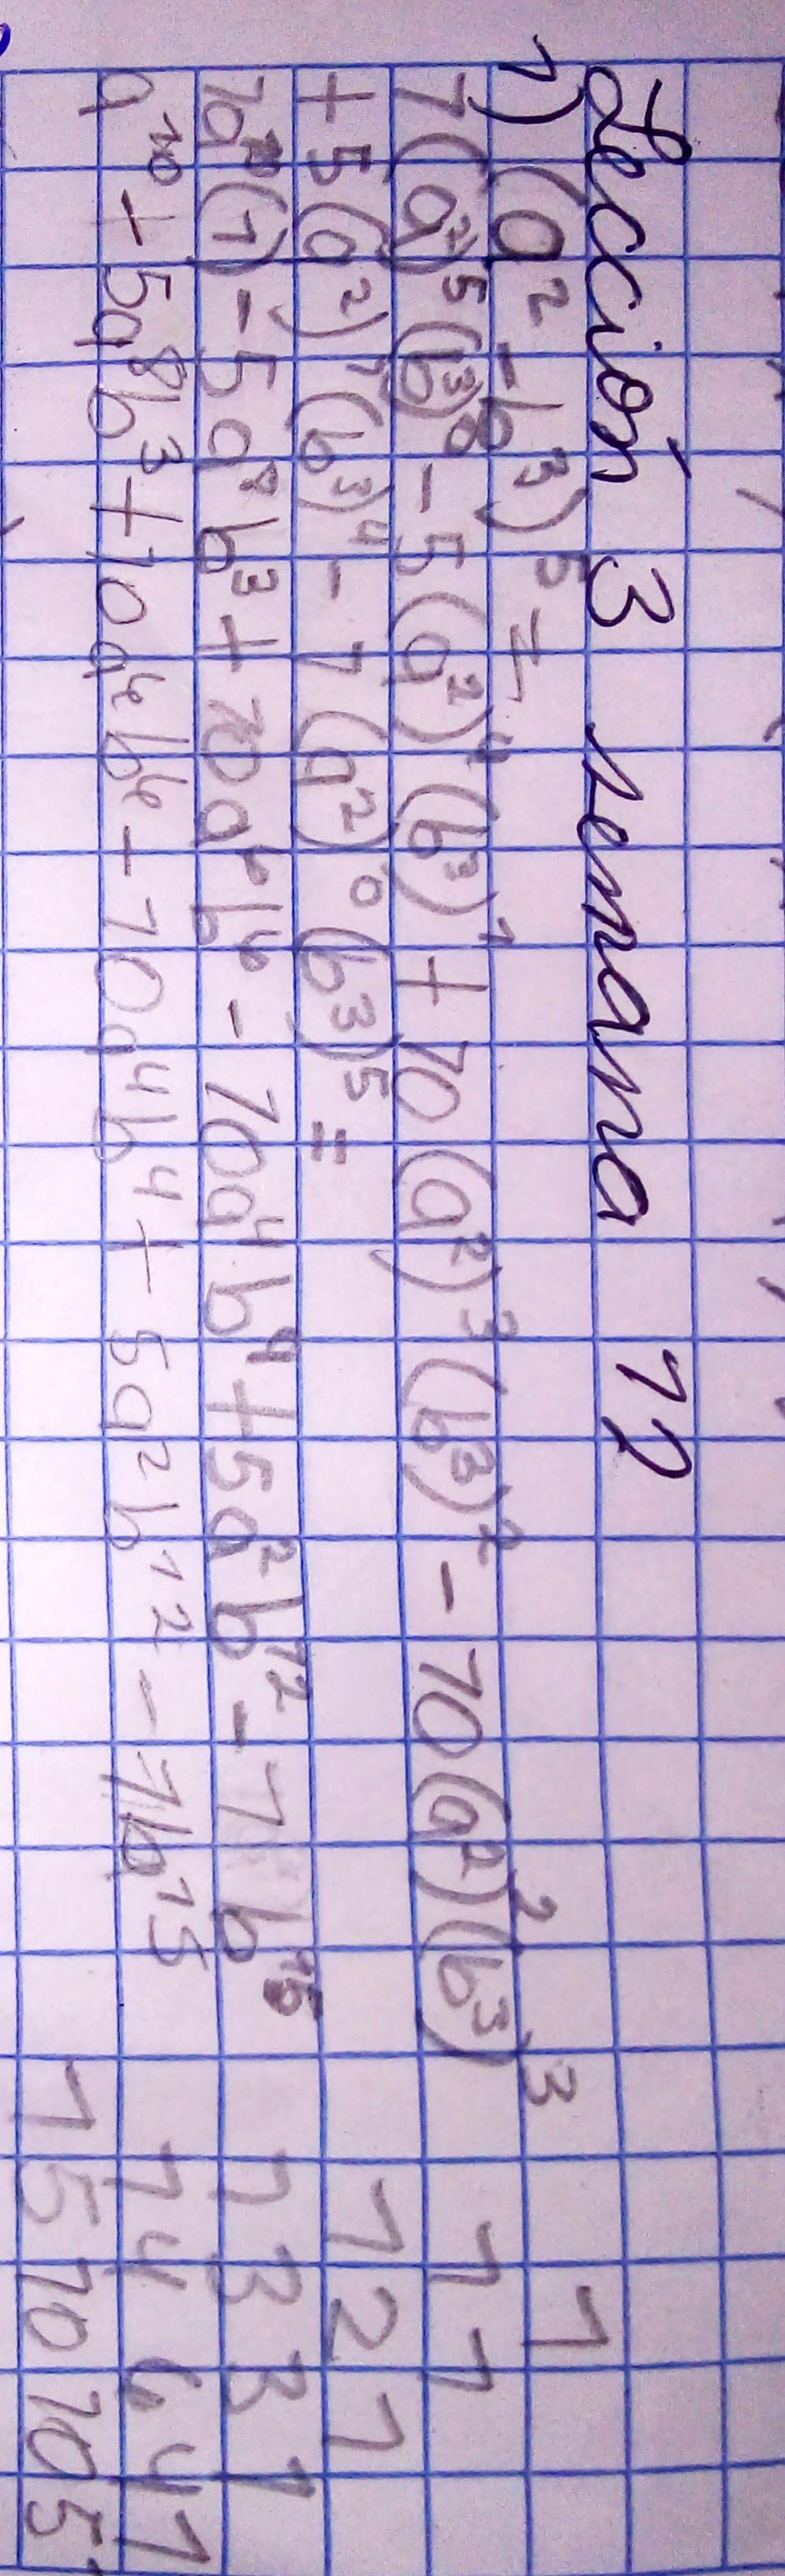 Lección 3 semana 12
1) (a² - b³)⁵ =
1(a²)⁵(b³)⁰ - 5(a²)⁴(b³)¹ + 10(a²)³(b³)² - 10(a²)²(b³)³
+ 5(a²)¹(b³)⁴ - 1(a²)⁰(b³)⁵ =
1a¹⁰(1) - 5a⁸b³ + 10a⁶b⁶ - 10a⁴b⁴ + 5a²b¹² - 1b¹⁵
a¹⁰ + 5a⁸b³ + 10a⁶b⁶ - 10a⁴b⁴ + 5a²b¹² - 1b¹⁵
1
1 1
1 2 1
1 3 3 1
1 4 6 4 1
1 5 10 10 5